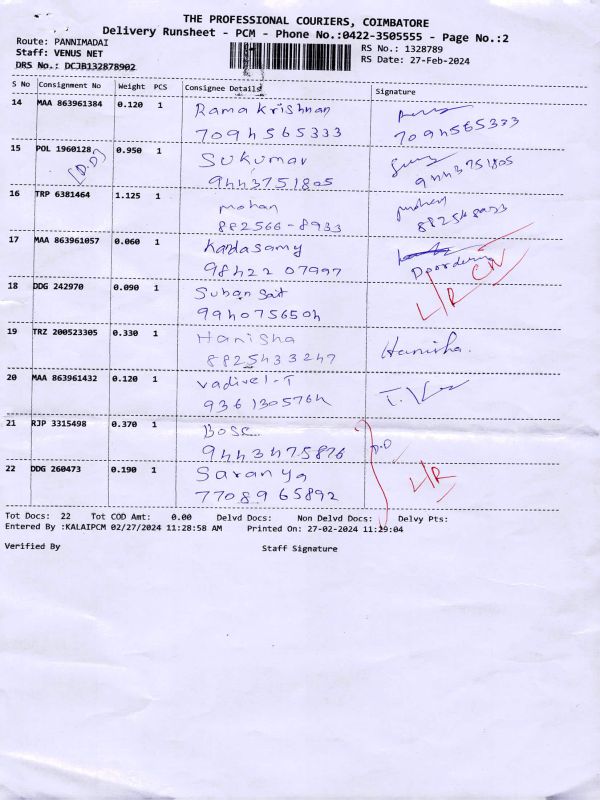 THE PROFESSIONAL COURIERS, COIMBATORE
Delivery Runsheet - PCM - Phone No.:0422-3505555 - Page No.:2
Route: PANNIMADAI
RS No.: 1328789
Staff: VENUS NET
RS Date: 27-Feb-2024
DRS No.: DCJB132878902
S No Consignment No Weight PCS Consignee Details Signature
14 MAA 863961384 0.120 1 Rama Krishnan
7094565333 7094565333
15 POL 1960128 0.950 1 Sukumar
[D.D] 9443751805 9443751805
16 TRP 6381464 1.125 1 mohan mohan
882566-8933
17 MAA 863961057 0.060 1 Kandasamy
98422 07997
18 DDG 242970 0.090 1 Suban Sait L/R
9940756504
19 TRZ 200523305 0.330 1 Hanisha Hanisha.
8825433247
20 MAA 863961432 0.120 1 Vadivel-T
9361305764
21 RJP 3315498 0.370 1 Bose D.D
9443475876
22 DDG 260473 0.190 1 Saranya L/R
7708965892
Tot Docs: 22 Tot COD Amt: 0.00 Delvd Docs: Non Delvd Docs: Delvy Pts:
Entered By :KALAIPCM 02/27/2024 11:28:58 AM Printed On: 27-02-2024 11:29:04
Verified By Staff Signature